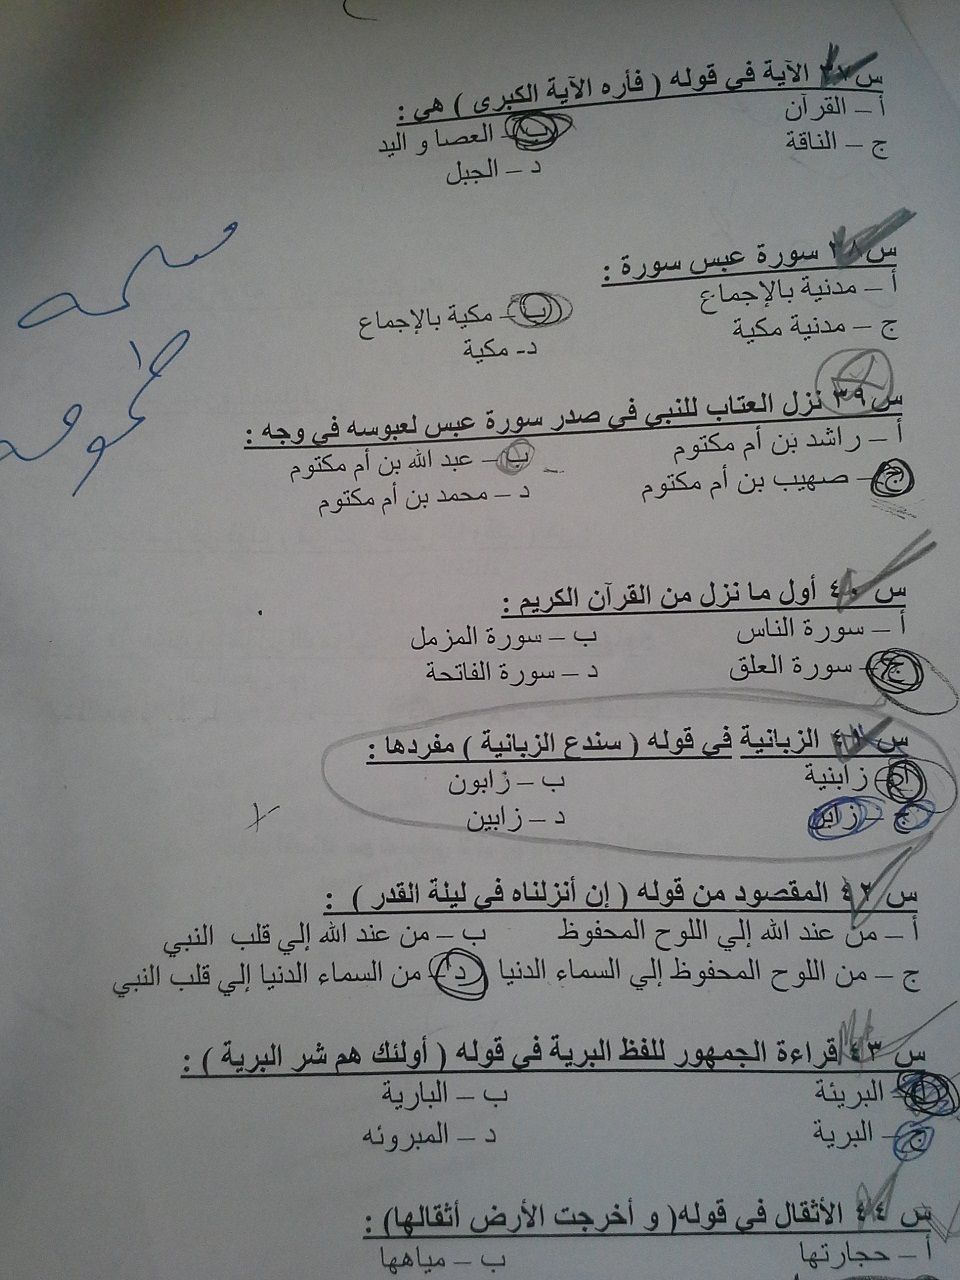 س ٣٧ الآية في قوله ( فأره الآية الكبرى ) هي :
أ – القرآن
ب – العصا و اليد
ج – الناقة
د – الجبل
س ٣٨ سورة عبس سورة :
أ – مدنية بالإجماع
ب – مكية بالإجماع
ج – مدنية مكية
د- مكية
س ٣٩ نزل العتاب للنبي في صدر سورة عبس لعبوسه في وجه :
أ – راشد بن أم مكتوم
ب – عبد الله بن أم مكتوم
ج – صهيب بن أم مكتوم
د – محمد بن أم مكتوم
س ٤٠ أول ما نزل من القرآن الكريم :
أ – سورة الناس ب – سورة المزمل
ج – سورة العلق د – سورة الفاتحة
س ٤١ الزبانية في قوله ( سندع الزبانية ) مفردها :
أ – زابنية ب – زابون
ج – زابن د – زابين
س ٤٢ المقصود من قوله ( إن أنزلناه في ليلة القدر ) :
أ – من عند الله إلي اللوح المحفوظ ب – من عند الله إلي قلب النبي
ج – من اللوح المحفوظ إلي السماء الدنيا د – من السماء الدنيا إلي قلب النبي
س ٤٣ قراءة الجمهور للفظ البرية في قوله ( أولئك هم شر البرية ) :
أ – البريئة ب – البارية
ج – البرية د – المبروئه
س ٤٤ الأثقال في قوله( و أخرجت الأرض أثقالها) :
أ – حجارتها ب – مياهها